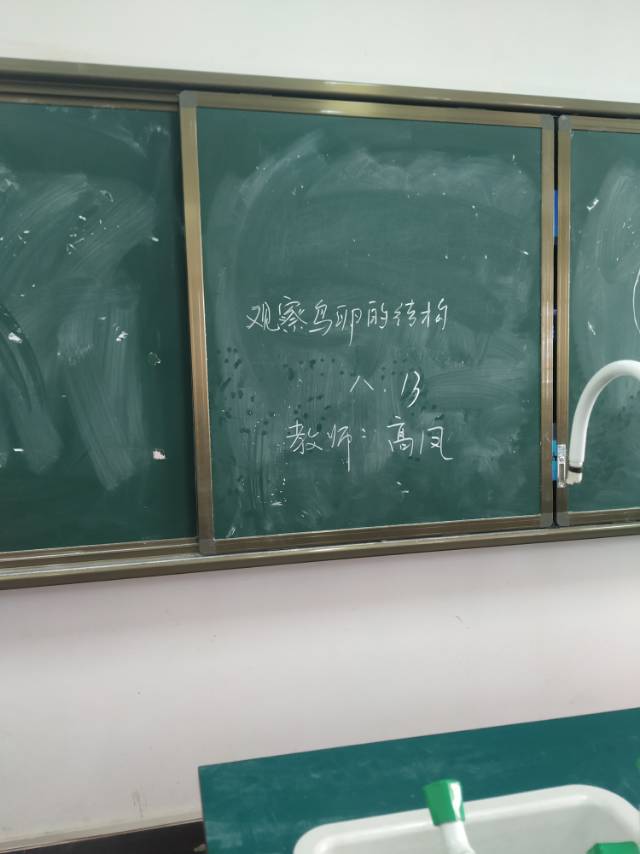 观察鸟卵的结构
八.13
教师：高凤